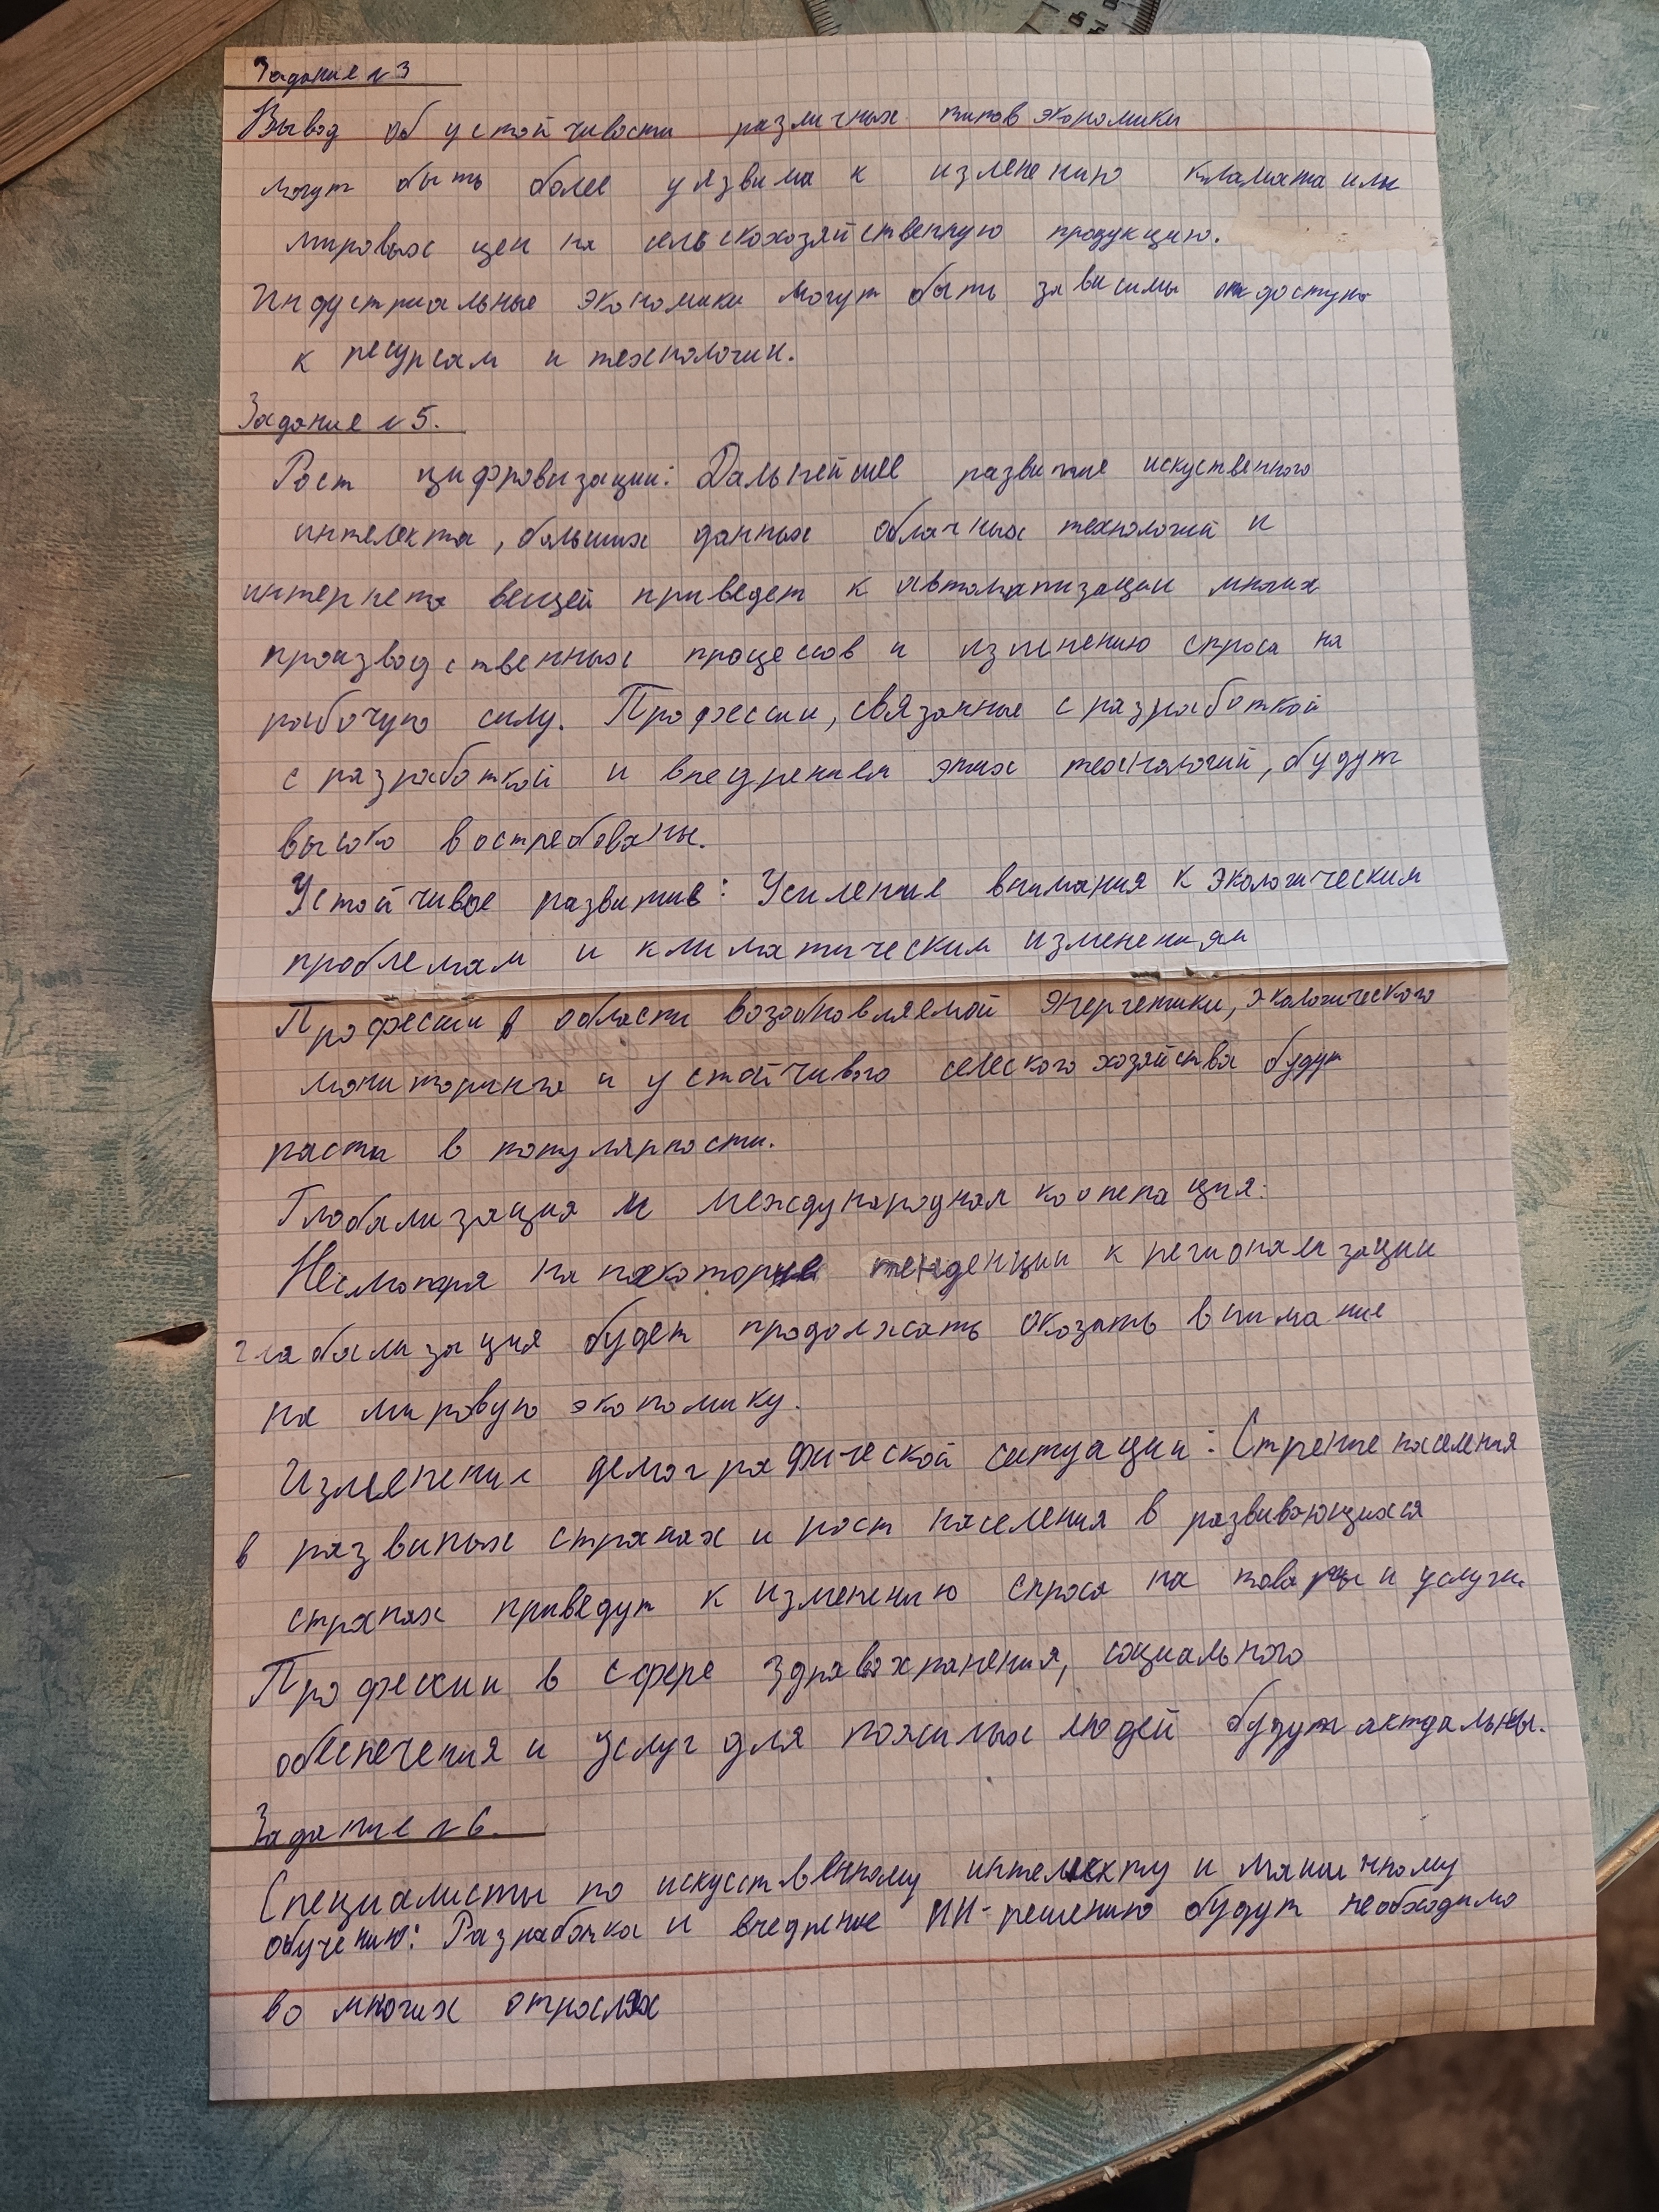 Задание №3
Вывод об устойчивости различных типов экономики
могут быть более уязвима к изменению кламата или
мировых цен на сельскохозяйственную продукцию.
Индустриальные экономики могут быть зависимы от доступа
к ресурсам и технологии.
Задание №5.
Рост цифровизации: Дальнейшее развитие искуственного
интелекта, больших данных облачных технологий и
интернета вещей приведет к автоматизации многих
производственных процессов и изменению спроса на
рабочую силу. Профессии, связанные с разработкой
с разработкой и внедрением этих технологий, будут
высоко востребованы.
Устойчивое развитие: Усиление внимания к экологическим
проблемам и климатическим изменениям
Профессии в области возобновляемой энергетики, экологического
мониторинга и устойчивого селеского хозяйства будут
расти в популярности.
Глобализация и международная кооперация:
Несмотря на некоторые тенденции к регионализации
глабализация будет продолжать оказать внимание
на мировую экономику.
Изменения демографической ситуации: Стрение населения
в развитых странах и рост населения в развивающихся
странах приведут к изменению спроса на товары и услуги.
Профессии в сфере здравохранения, социального
обеспечения и услуг для пожилых людей будут актуальны.
Задание №6.
Специалисты по искусственному интелекту и машинному
обучению: Разработка и внедрение ИИ-решению будут необходимо
во многих отраслях